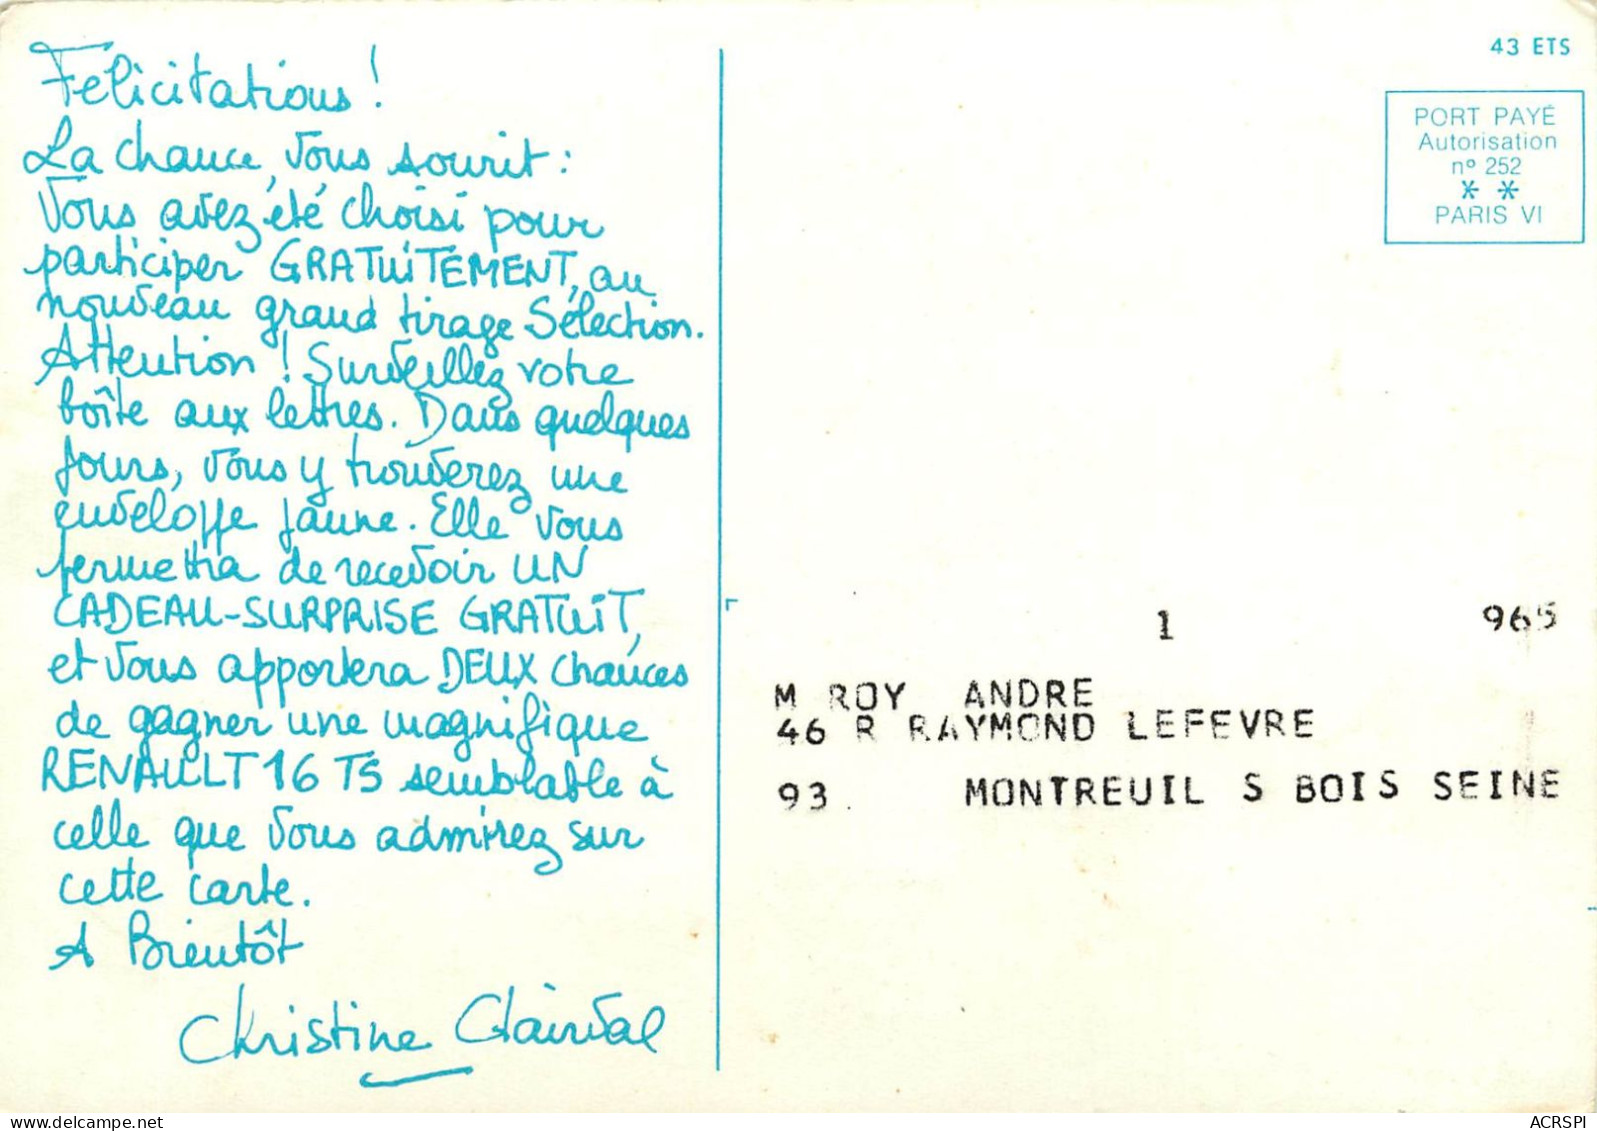 Félicitations !
La chance, vous sourit :
Vous avez été choisi pour
participer GRATUITEMENT, au
nouveau grand tirage Sélection.
Attention ! Surveillez votre
boîte aux lettres. Dans quelques
jours, vous y trouverez une
enveloppe jaune. Elle vous
permettra de recevoir UN
CADEAU-SURPRISE GRATUIT,
et vous apportera DEUX chances
de gagner une magnifique
RENAULT 16 TS semblable à
celle que vous admirez sur
cette carte.
A Bientôt
Christine Clairval
43 ETS
PORT PAYÉ
Autorisation
nº 252
* *
PARIS VI
1 965
M ROY ANDRE
46 R RAYMOND LEFEVRE
93 MONTREUIL S BOIS SEINE
ACRSPI